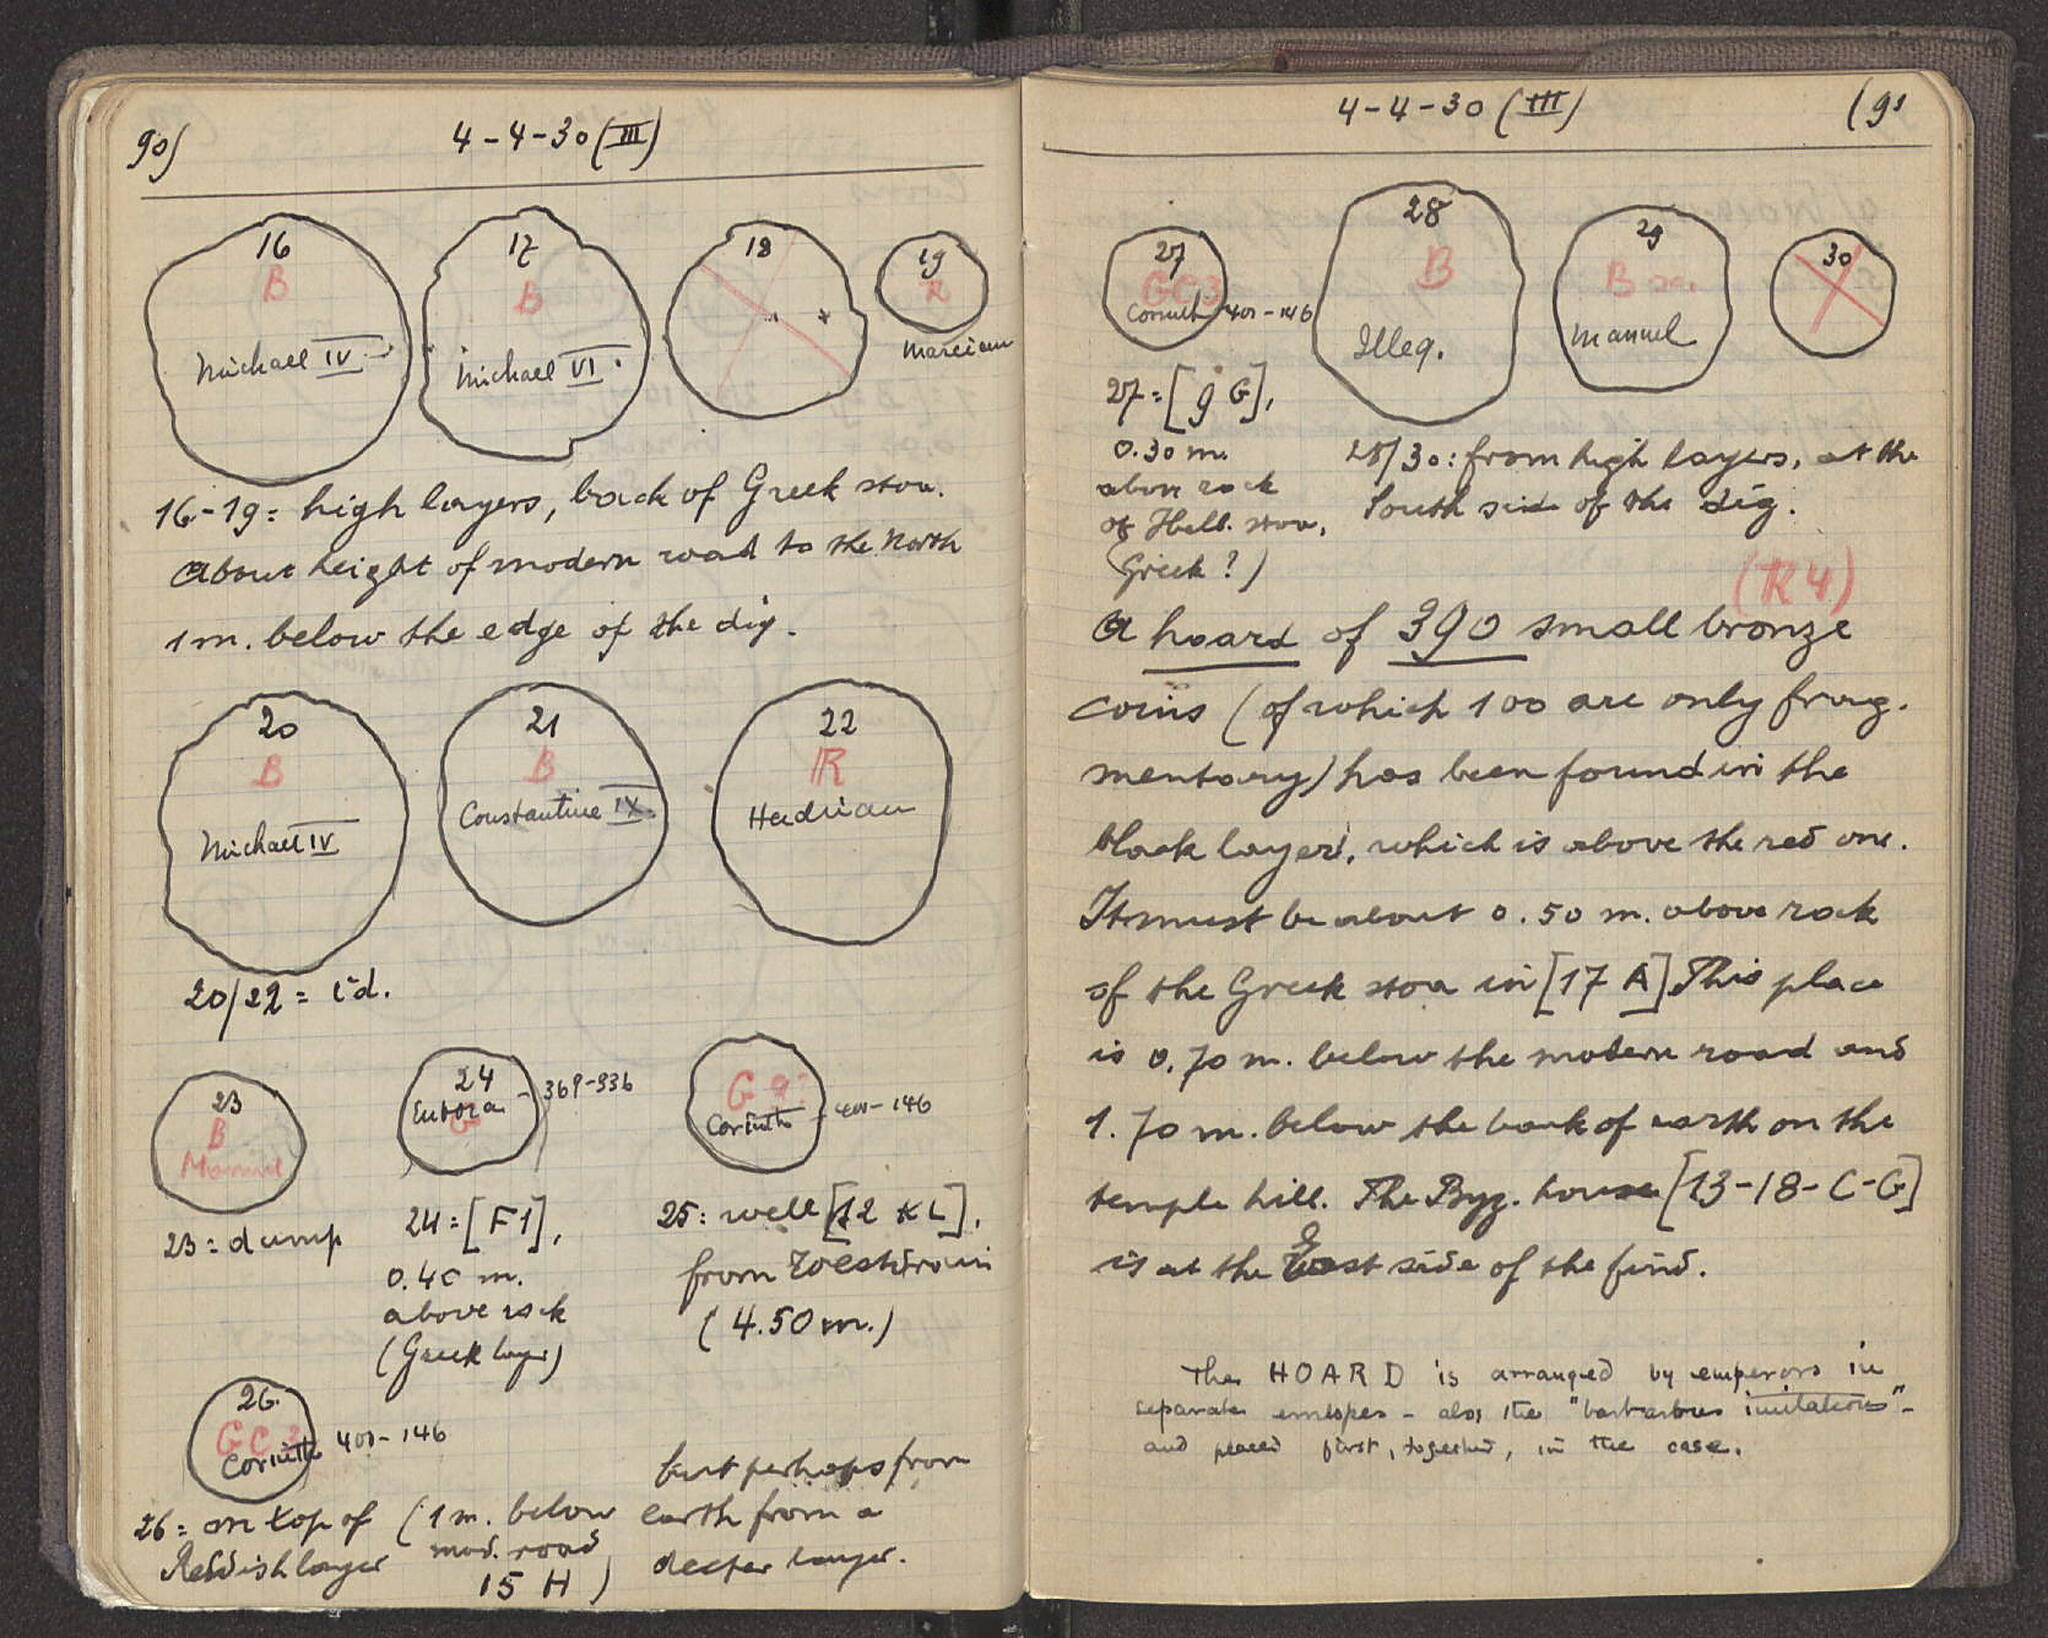 90)
4-4-30 (III)
16
B
Michael IV
17
B
Michael VI
18
19
R
Marcian
16-19= high layers, back of Greek stoa.
About height of modern road to the North
1 m. below the edge of the dig.
20
B
Michael IV
21
B
Constantine IX
22
R
Hadrian
20/22= id.
23
B
Manuel
23= dump
24
Euboea - 369-336
G
24= [F1],
0.40 m.
above rock
(Greek layer)
G
Corinth - 400-146
25: well [12 KL],
from West drain
(4.50 m.)
26
GC
Corinth 400-146
26= on top of
Reddish layer
(1 m. below
mod. road
15 H)
but perhaps from
earth from a
deeper layer.
4-4-30 (III)
(91
27
GC3
Corinth 400-146
27=[9 G],
0.30 m.
above rock
of Hell. stoa,
(Greek?)
28
B
Illeg.
29
B
Manuel
30
28/30: from high layers, at the
South side of the dig.
(R4)
A hoard of 390 small bronze
coins (of which 100 are only frag-
mentary) has been found in the
black layer, which is above the red one.
It must be about 0.50 m. above rock
of the Greek stoa in [17 A] This place
is 0.70 m. below the modern road and
1.70 m. below the bank of earth on the
temple hill. The Byz. house [13-18-C-G]
is at the East side of the find.
The HOARD is arranged by emperors in
separate envelopes - also the "barbarous imitations" -
and placed first, together, in the case.